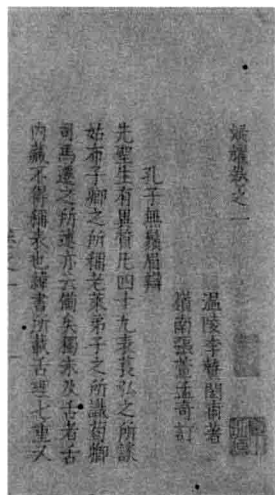 耀 之一
溫陵李 閏甫著
嶺南張萱孟奇訂
孔子無鬚眉辯
先聖生有異質凡四十九表萇弘之所談
姑布子卿之所稱老萊弟子之所識荀卿
司馬遷之所述亦云備矣獨未及舌者舌
內藏不得稱表也緯書所載舌理七重又